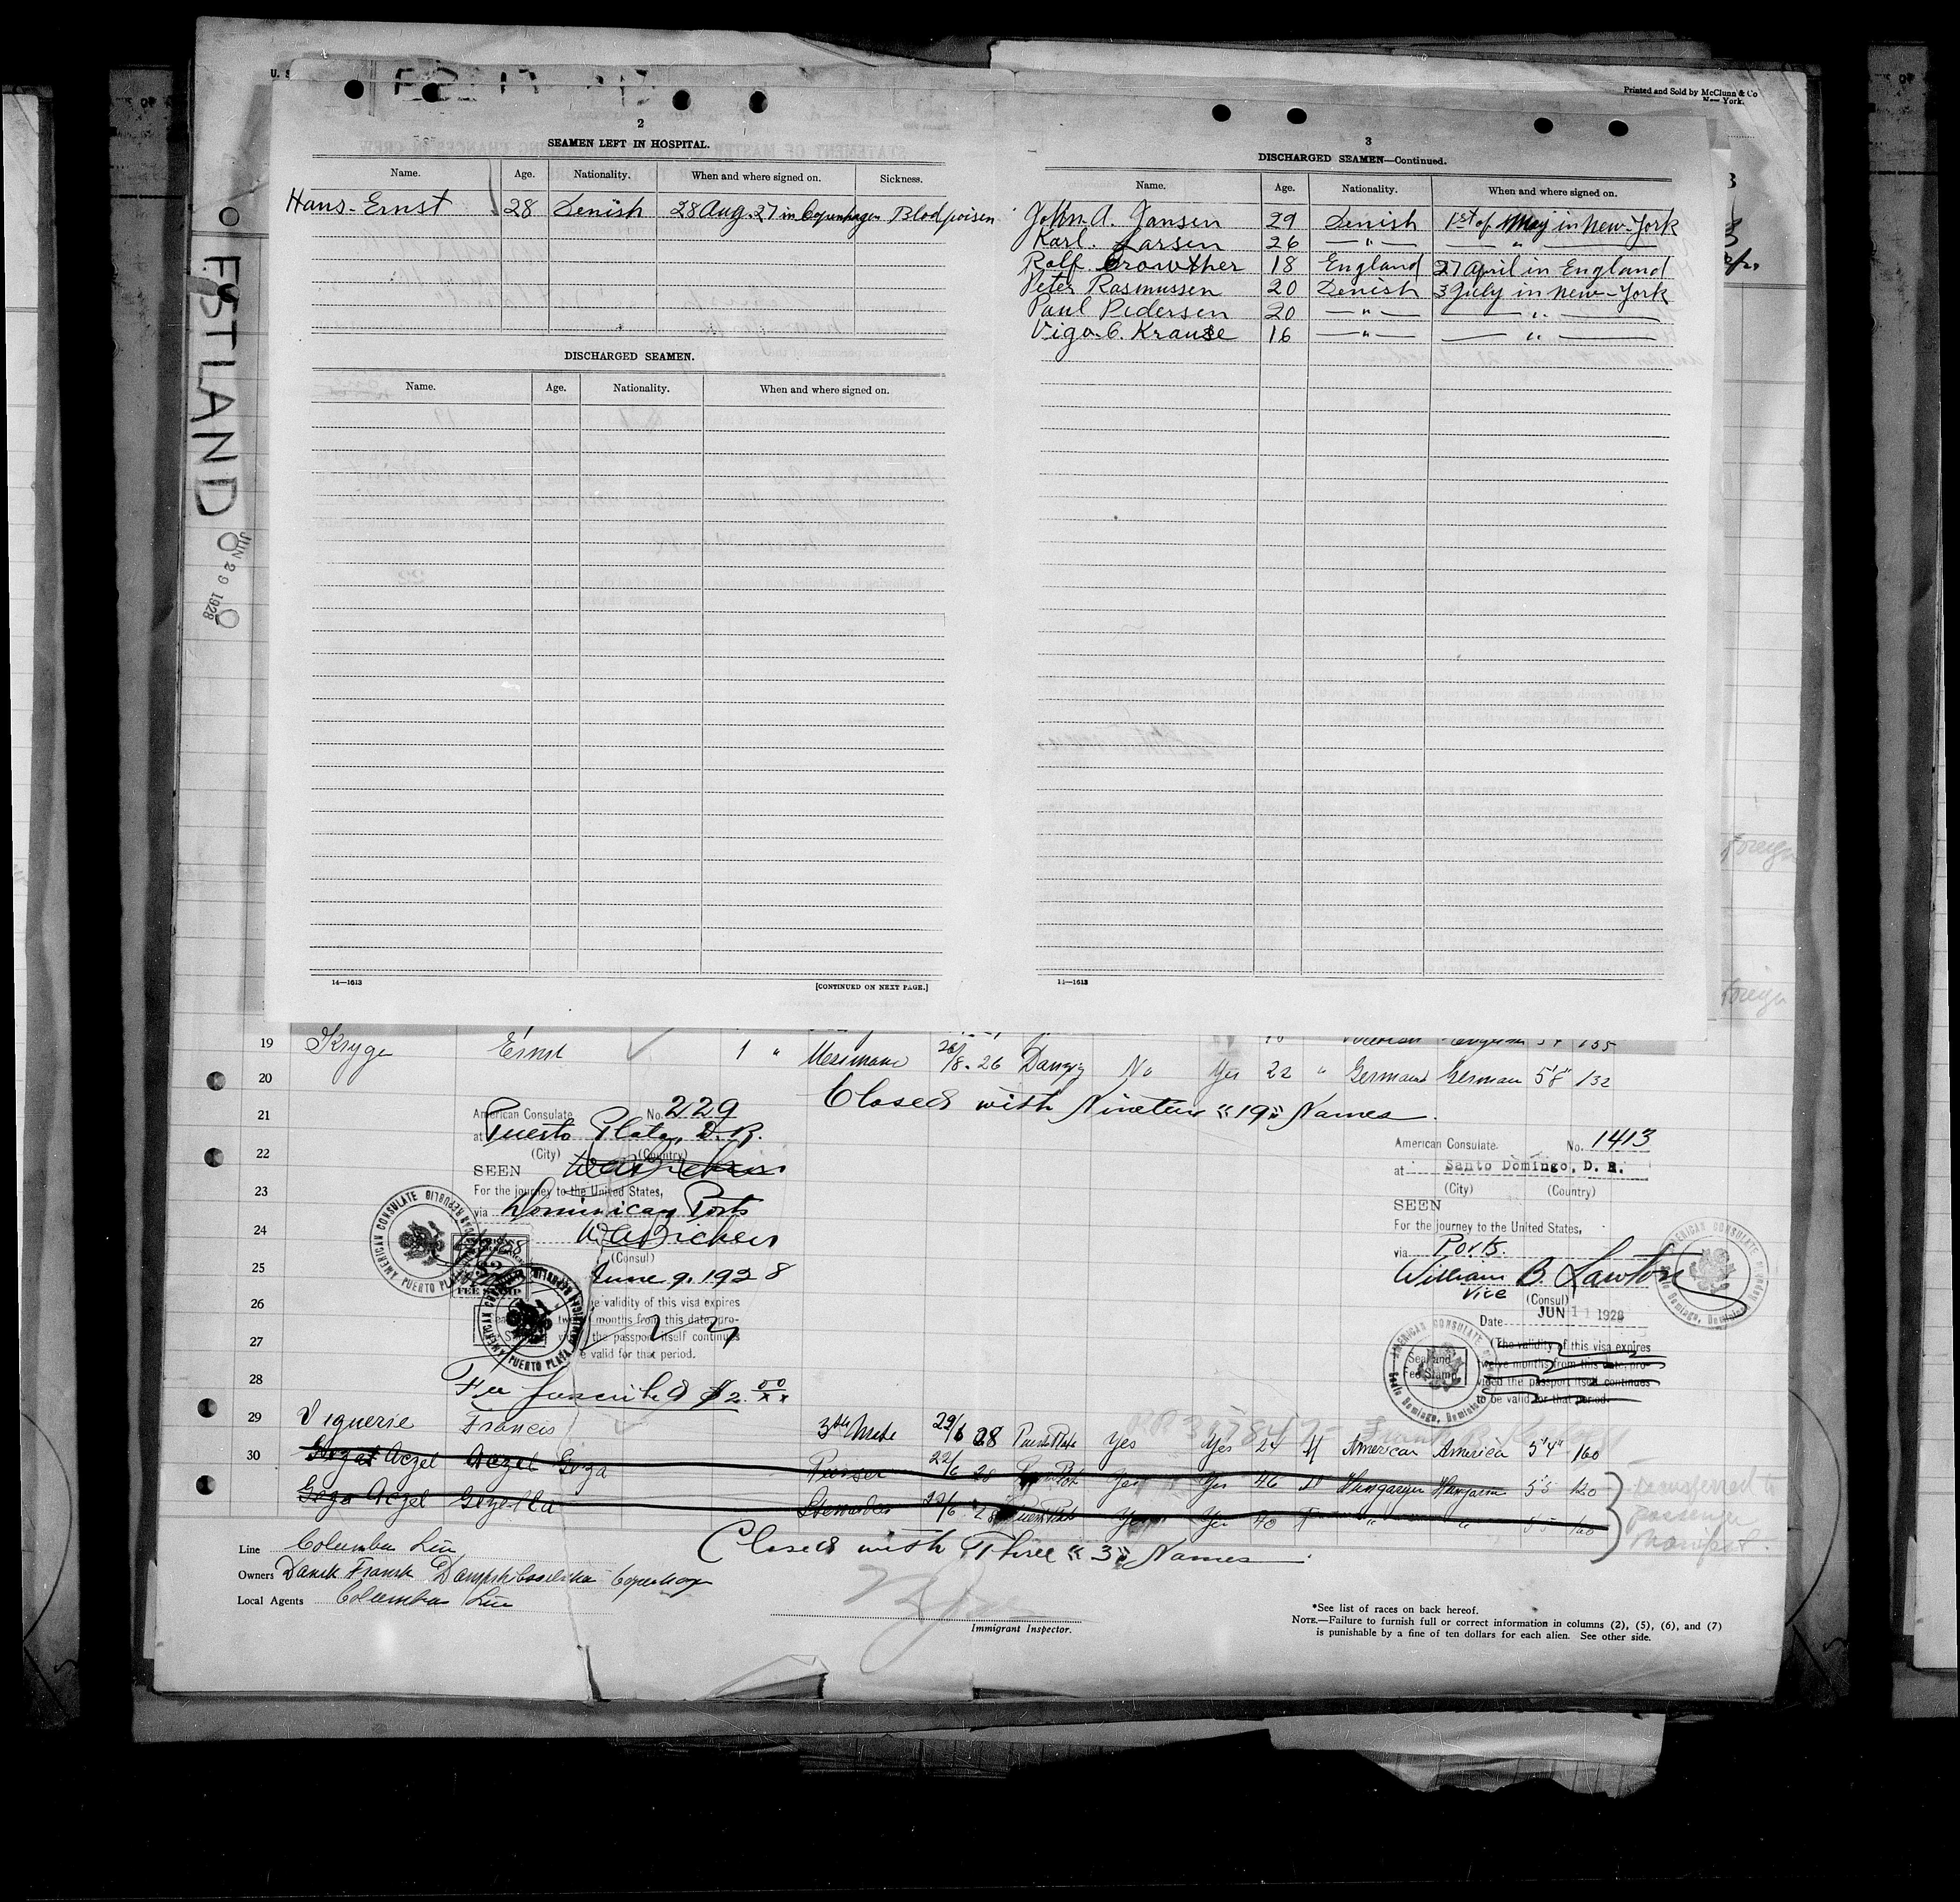 U. S
Printed and Sold by McClunn & Co
New York.
ESTLAND
JUN 29 1928
2
SEAMEN LEFT IN HOSPITAL.
Name. Age. Nationality. When and where signed on. Sickness.
Hans-Ernst 28 Denish 28 Aug. 27 in Copenhagen Blod poisen
DISCHARGED SEAMEN.
Name. Age. Nationality. When and where signed on.
14—1613 [CONTINUED ON NEXT PAGE.]
3
DISCHARGED SEAMEN—Continued.
Name. Age. Nationality. When and where signed on.
John A. Jansen 29 Denish 1st of May in New-York
Karl. Larsen 26 — " — — " —
Rolf Crowther 18 England 27 April in England
Peter Rasmussen 20 Denish 3 July in New-York
Paul Pedersen 20 — " — — " —
Vigo C. Krause 16 — " — — " —
14—1613
Foreign
Foreign
19 Kryge Ernst 1 " Messman 26/8. 26 Danzig No Yes 22 " German German 5'8" 132
20
Closed with Nineteen "19" Names.
21
22
23
24
25
26
27
28
American Consulate No. 229
at Puerto Plata, D.R.
(City) (Country)
SEEN
For the journey to the United States,
via Dominican Ports
W A Bickers
(Consul)
June 9, 1928
e validity of this visa expires
months from this date, pro-
the passport itself continues
e valid for that period.
AMERICAN CONSULATE PUERTO PLATA
FEE STAMP
Fee prescribed $2.00
American Consulate No. 1413
at Santo Domingo, D. R.
(City) (Country)
SEEN
For the journey to the United States,
via Ports.
William B. Lawton
Vice
(Consul)
Date JUN 11 1928
(The validity of this visa expires
twelve months from this date, pro-
vided the passport itself continues
to be valid for that period.
Seal and
Fee Stamp
AMERICAN CONSULATE Santo Domingo, Dominican Republic
29 Viguerie Francis 3rd Mate 22/6 28 Puerto Plata Yes Yes 24 M American America 5'4" 160
30 Aczel Geza Purser 22/6 28 Yes Yes 46 M Hungaryan Hungarian 5'5 120
Aczel Gizella Stewardes 22/6 28 Yes 40 F " " 5'5 160
transferred to
passenger
Manifest.
Closed with Three "3" Names.
Line Columbus Line
Owners Dansk Fransk Dampskibsselskab Copenhagen
Local Agents Columbus Line
Immigrant Inspector.
*See list of races on back hereof.
NOTE.—Failure to furnish full or correct information in columns (2), (5), (6), and (7)
is punishable by a fine of ten dollars for each alien. See other side.